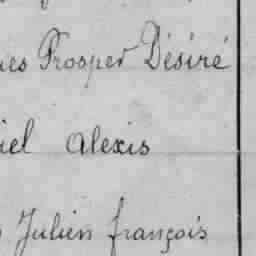 Prosper Désiré
Alexis
Julien françois